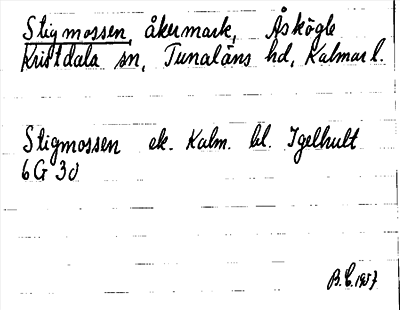 Stigmossen, åkermark, Åskögle
Kristdala sn, Tunaläns hd, Kalmar l.
Stigmossen ek. Kalm. bl. Igelhult
6G 30
B.C. 1957